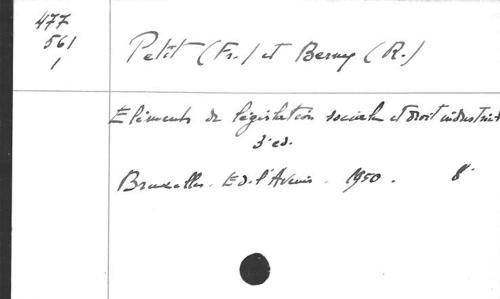 477
561
1
Petit (Fr.) et Berny (R.)
Eléments de législation sociale et droit industriel
3e ed.
Bruxelles. Ed. l'Avenir. 1950. 8°